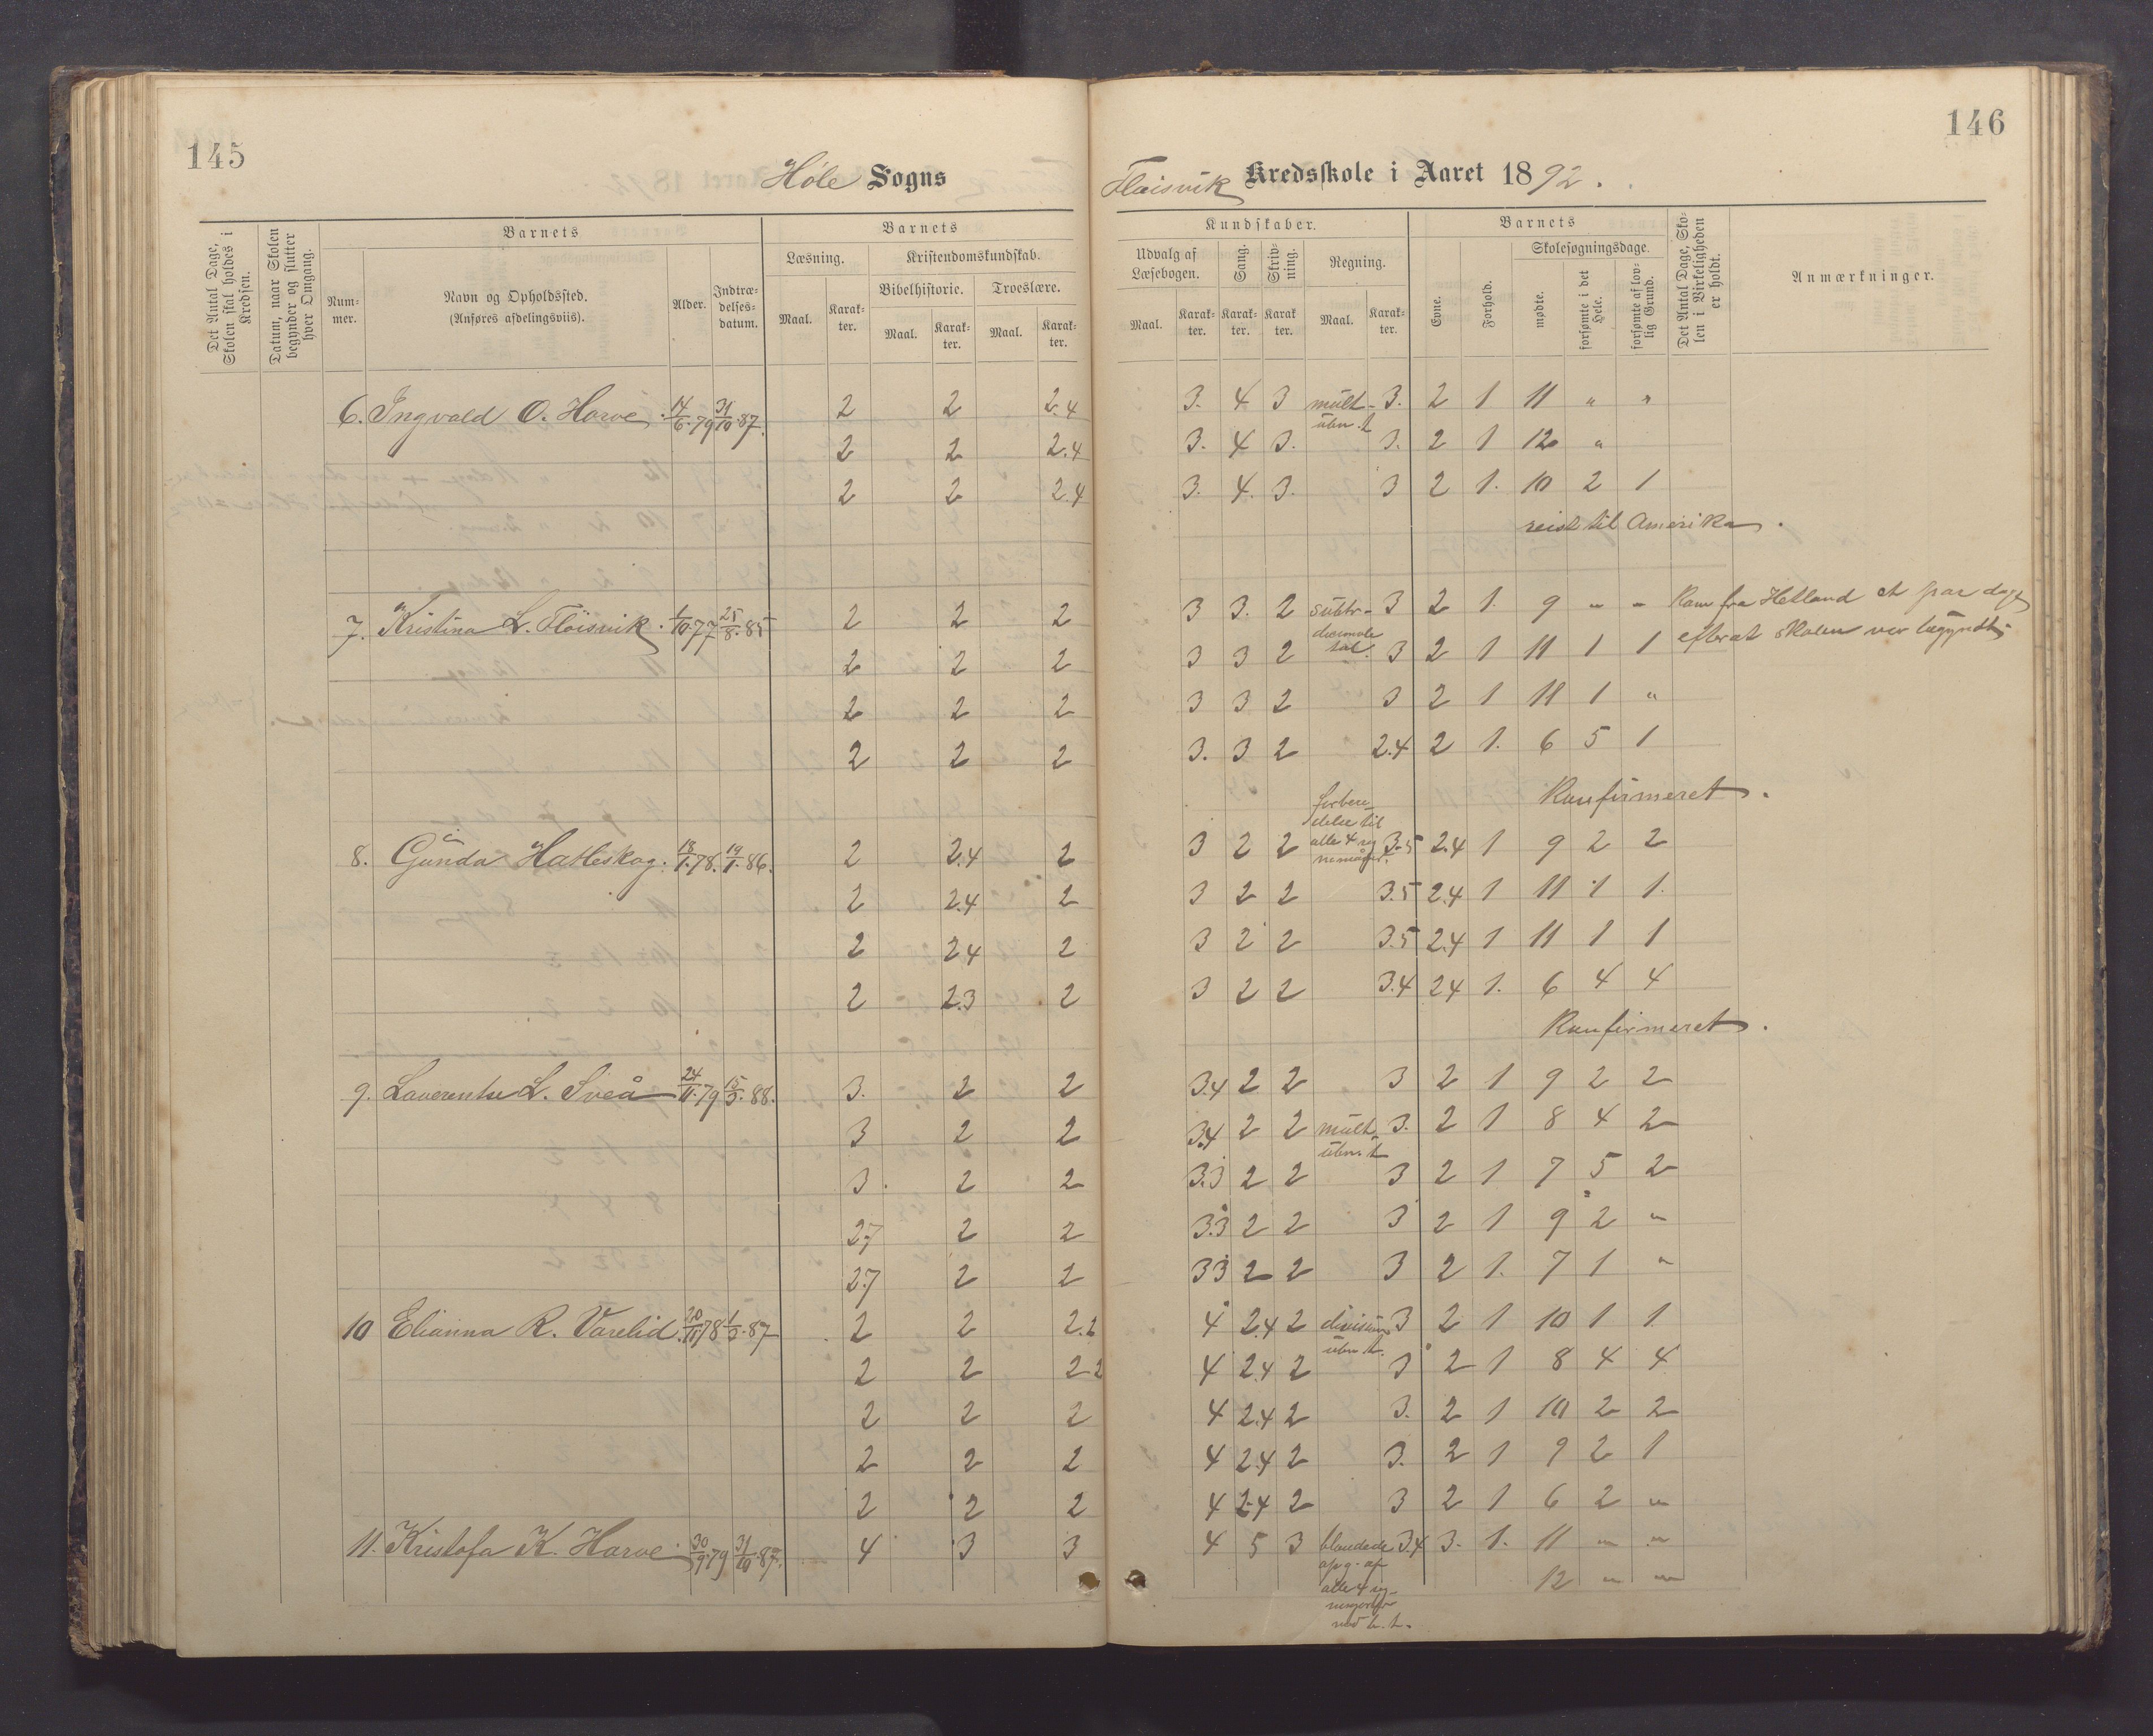 145
Høle Sogns
Det Antal Dage, Skolen skal holdes i Kredsen.
Datum, naar Skolen begynder og slutter hver Omgang.
Barnets
Barnets
Num-
mer.
Navn og Opholdssted.
(Anføres afdelingsviis).
Alder.
Indtræ-
delses-
datum.
Læsning.
Kristendomskundskab.
Bibelhistorie.
Troeslære.
Maal.
Karak-
ter.
Maal.
Karak-
ter.
Maal.
Karak-
ter.
6. Ingvald O. Harve 14/6.79 31/10.87. 2 2 2.4
2 2 2.4
2 2 2.4
7. Kristina L. Flöisvik 1/10.77 25/8.85 2 2 2
2 2 2
2 2 2
2 2 2
8. Gunda Hatleskog. 18/1.78. 19/1.86. 2 2.4 2
2 2.4 2
2 2.4 2
2 2.3 2
9. Laverentse L. Sveå 24/11.79 15/3.88. 3. 2 2
3 2 2
3. 2 2
2.7 2 2
2.7 2 2
10 Elianna R. Varelid. 20/11.78 1/3.87 2 2 2.2
2 2 2.2
2 2 2
2 2 2
2 2 2
11. Kristofa K. Harve 30/9.79 31/10.87. 4 3 3
146
Flöisvik Kredsskole i Aaret 1892.
Kundskaber.
Barnets
Udvalg af
Læsebogen.
Sang.
Skriv-
ning.
Regning.
Evne.
Forhold.
Skolesøgningsdage.
mødte.
forsømte i det Hele.
forsømte af lov-
lig Grund.
Det Antal Dage, Sko-
len i Virkeligheden
er holdt.
Anmærkninger.
Maal.
Karak-
ter.
Karak-
ter.
Karak
ter.
Maal.
Karak-
ter.
3. 4 3 mult- 3. 2 1 11 " "
uben. t
3. 4 3. 3. 2 1 12 "
3. 4. 3. 3 2 1. 10 2 1
reist til Amerika.
3 3. 2 subtr- 3 2 1. 9 " " Kom fra Hetland et par dage
decimale
tal.
3 3 2 3 2 1 11 1 1 efterat skolen var begyndt
3 3 2 3 2 1 11 1 "
3. 3 2 2.4 2 1. 6 5 1
Konfirmeret.
forbere-
delse til
3 2 2 alle 4 reg 3.5 2.4 1 9 2 2
3 2 2 3.5 2.4 1 11 1 1.
3 2 2 3.5 2.4 1 11 1 1
3 2 2 3.4 2.4 1. 6 4 4
Konfirmeret.
3.4 2 2 3 2 1 9 2 2
3.4 2 2 mult 3. 2 1 8 4 2
uben. t
3.3 2 2 3 2 1 7 5 2
3.3 2 2 3 2 1 9 2 "
3.3 2 2 3 2 1. 7 1 "
4 2.4 2 division 3 2 1 10 1 1.
uben t.
4 2.4 2 3 2 1 8 4 4
4 2.4 2 3. 2 1 10 2 2
4 2.4 2 3. 2 1 9 2 1
4 2.4 2 3 2 1 6 2 "
4 5 3 blandede 3.4 3. 1. 11 " "
opg. af
12 " "
alle 4 reg-
ningsarter
med b. t.